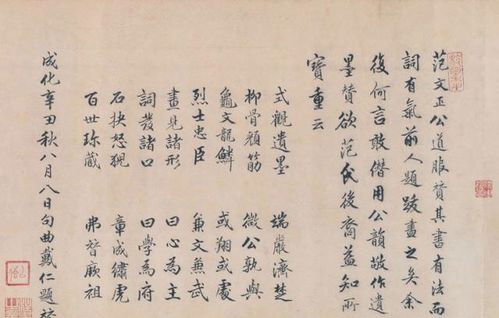 范文正公道服賛其書有法而
詞有氣前人題跋盡之矣余
復何言敢僭用公韻敬作遺
墨賛欲范氏後裔益知所
寶重云
式觀遺墨 端嚴濟楚
柳骨顏筋 微公孰與
龜文龍鱗 或翔或處
烈士忠臣 兼文無武
畫見諸形 曰心為主
詞發諸口 曰學為府
石抉怒猊 章成繡虎
百世珎藏 弗替厥祖
成化辛丑秋八月八日句曲戴仁題